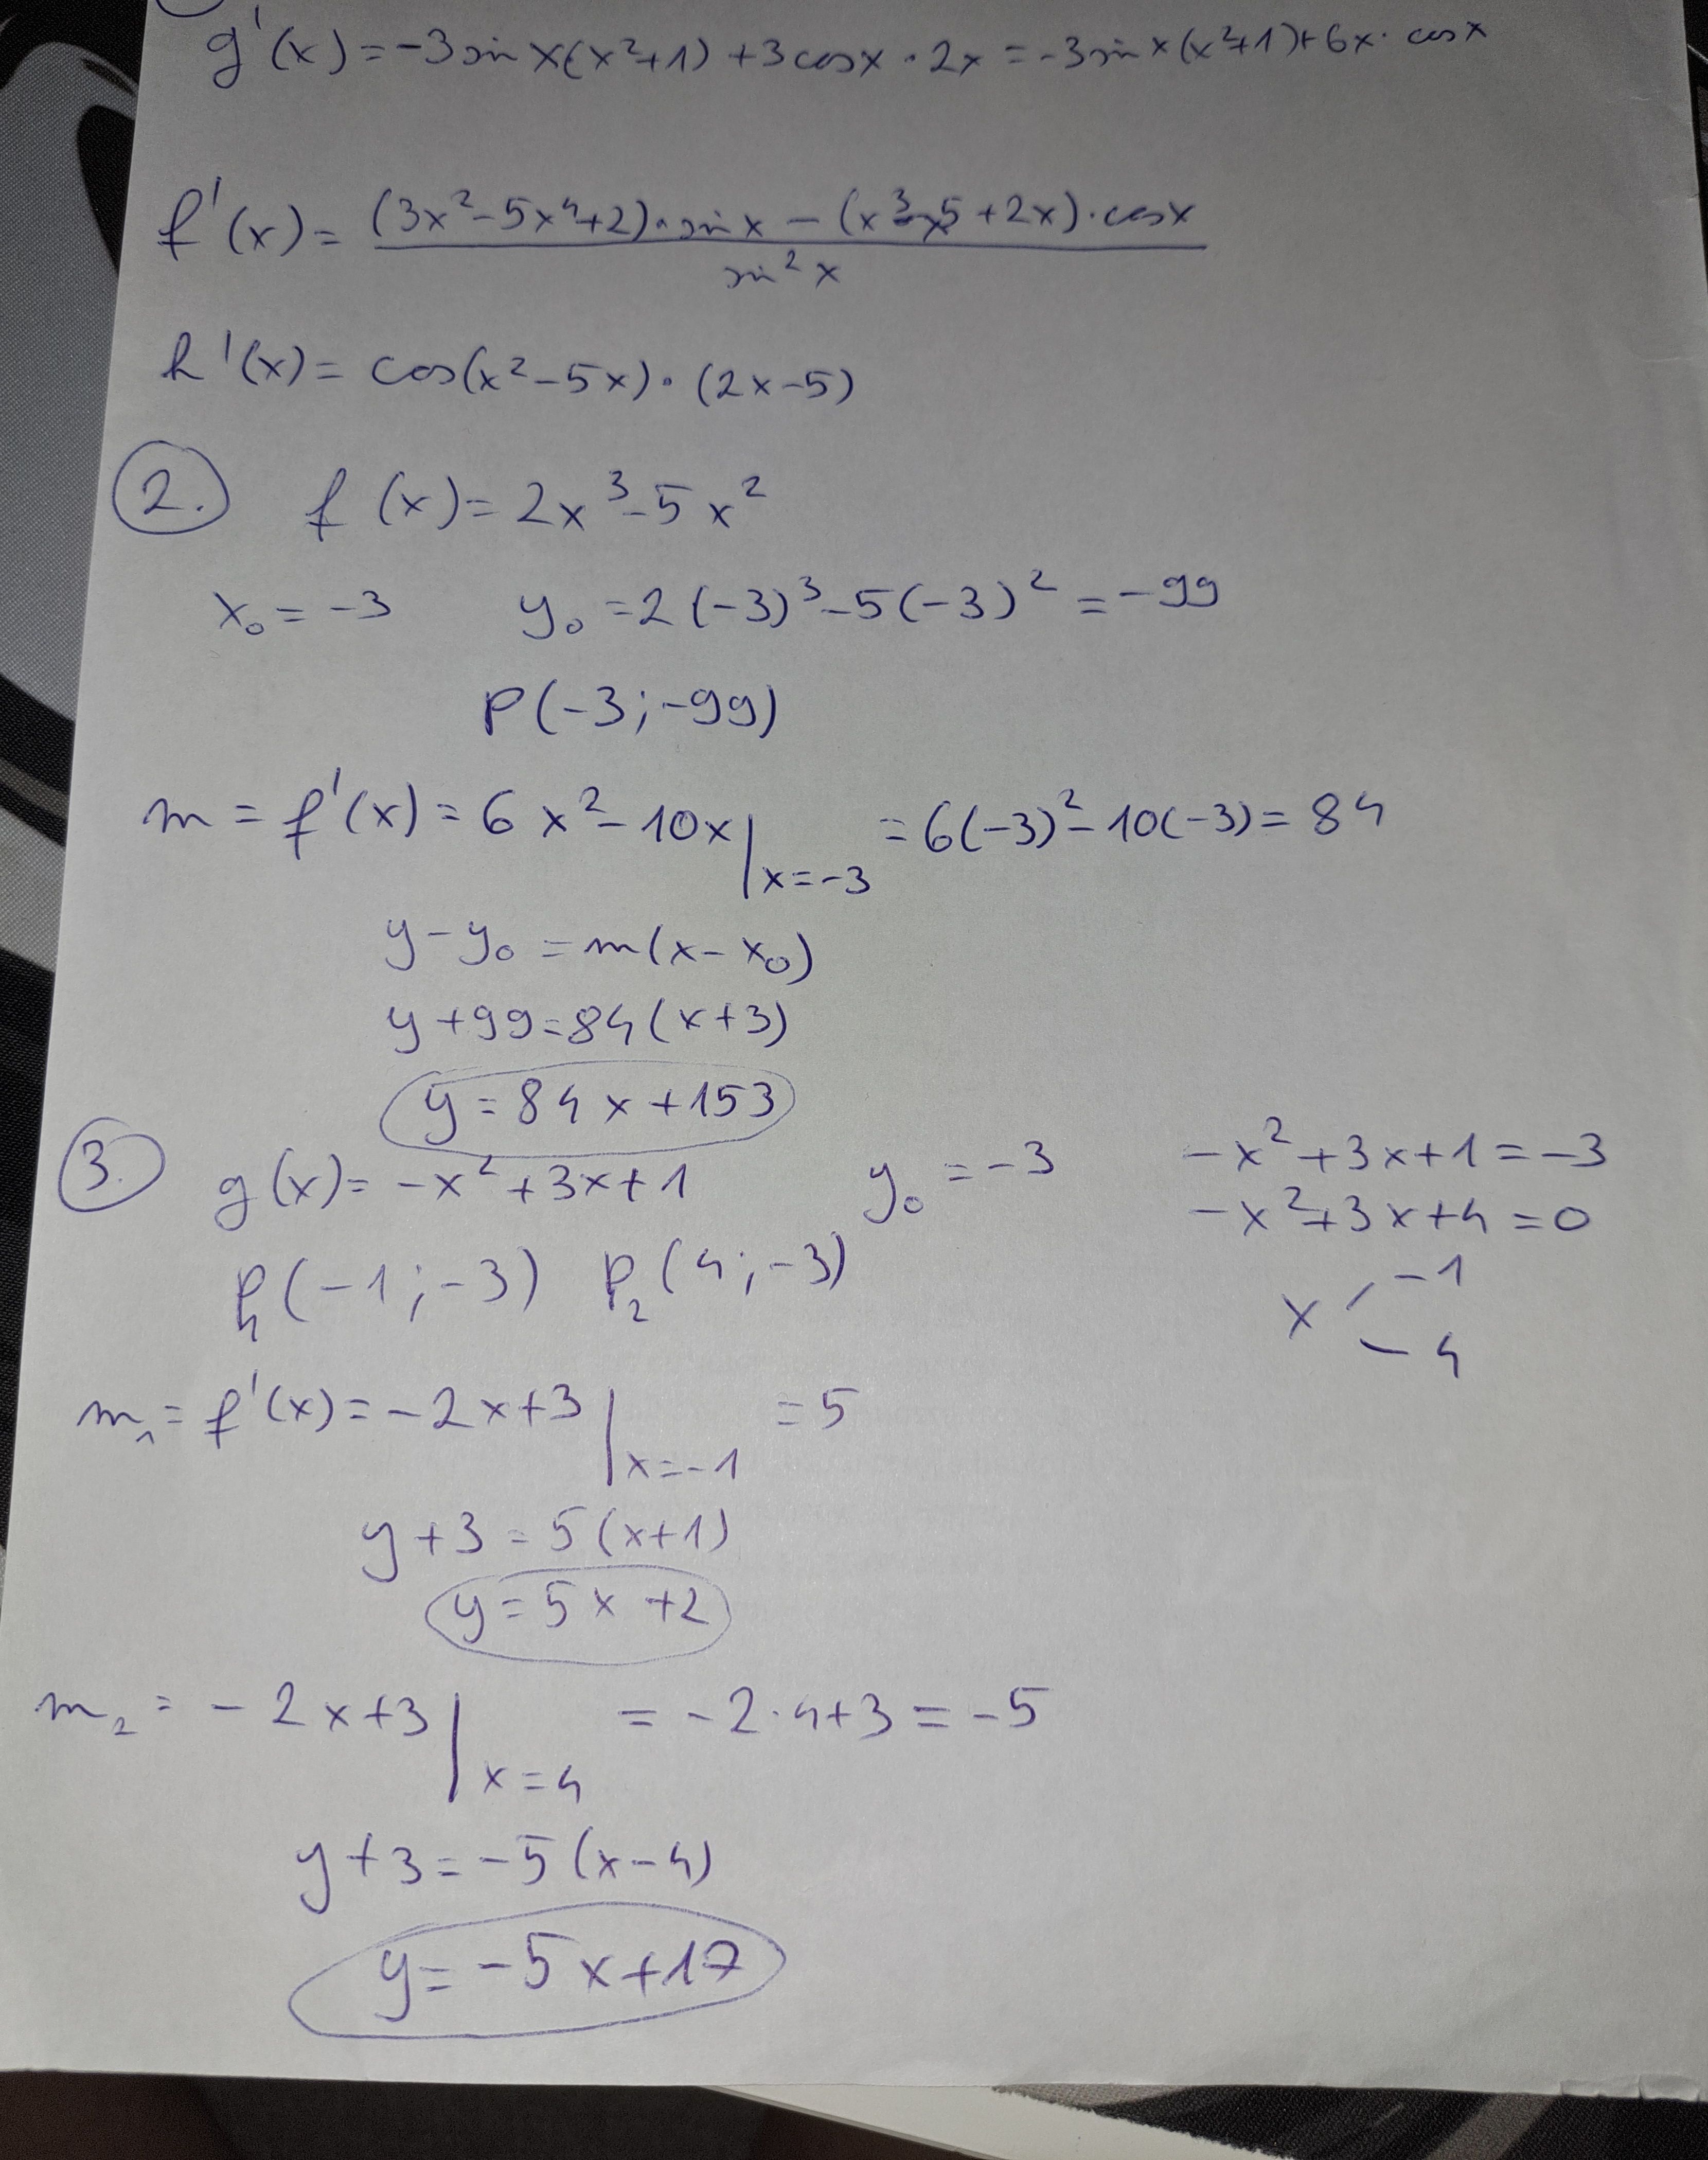 g'(x)=-3sin x(x²+1)+3cosx·2x=-3sin x(x²+1)+6x·cosx
f'(x)=((3x²-5x⁴+2)·sin x-(x³-x⁵+2x)·cosx)/(sin²x)
h'(x)=cos(x²-5x)·(2x-5)
2. f(x)=2x³-5x²
x₀=-3 y₀=2(-3)³-5(-3)²=-99
P(-3;-99)
m=f'(x)=6x²-10x|x=-3 =6(-3)²-10(-3)=84
y-y₀=m(x-x₀)
y+99=84(x+3)
y=84x+153
3. g(x)=-x²+3x+1 y₀=-3 -x²+3x+1=-3
-x²+3x+4=0
P₁(-1;-3) P₂(4;-3) x -1
4
m₁=f'(x)=-2x+3|x=-1 =5
y+3=5(x+1)
y=5x+2
m₂=-2x+3|x=4 =-2·4+3=-5
y+3=-5(x-4)
y=-5x+17